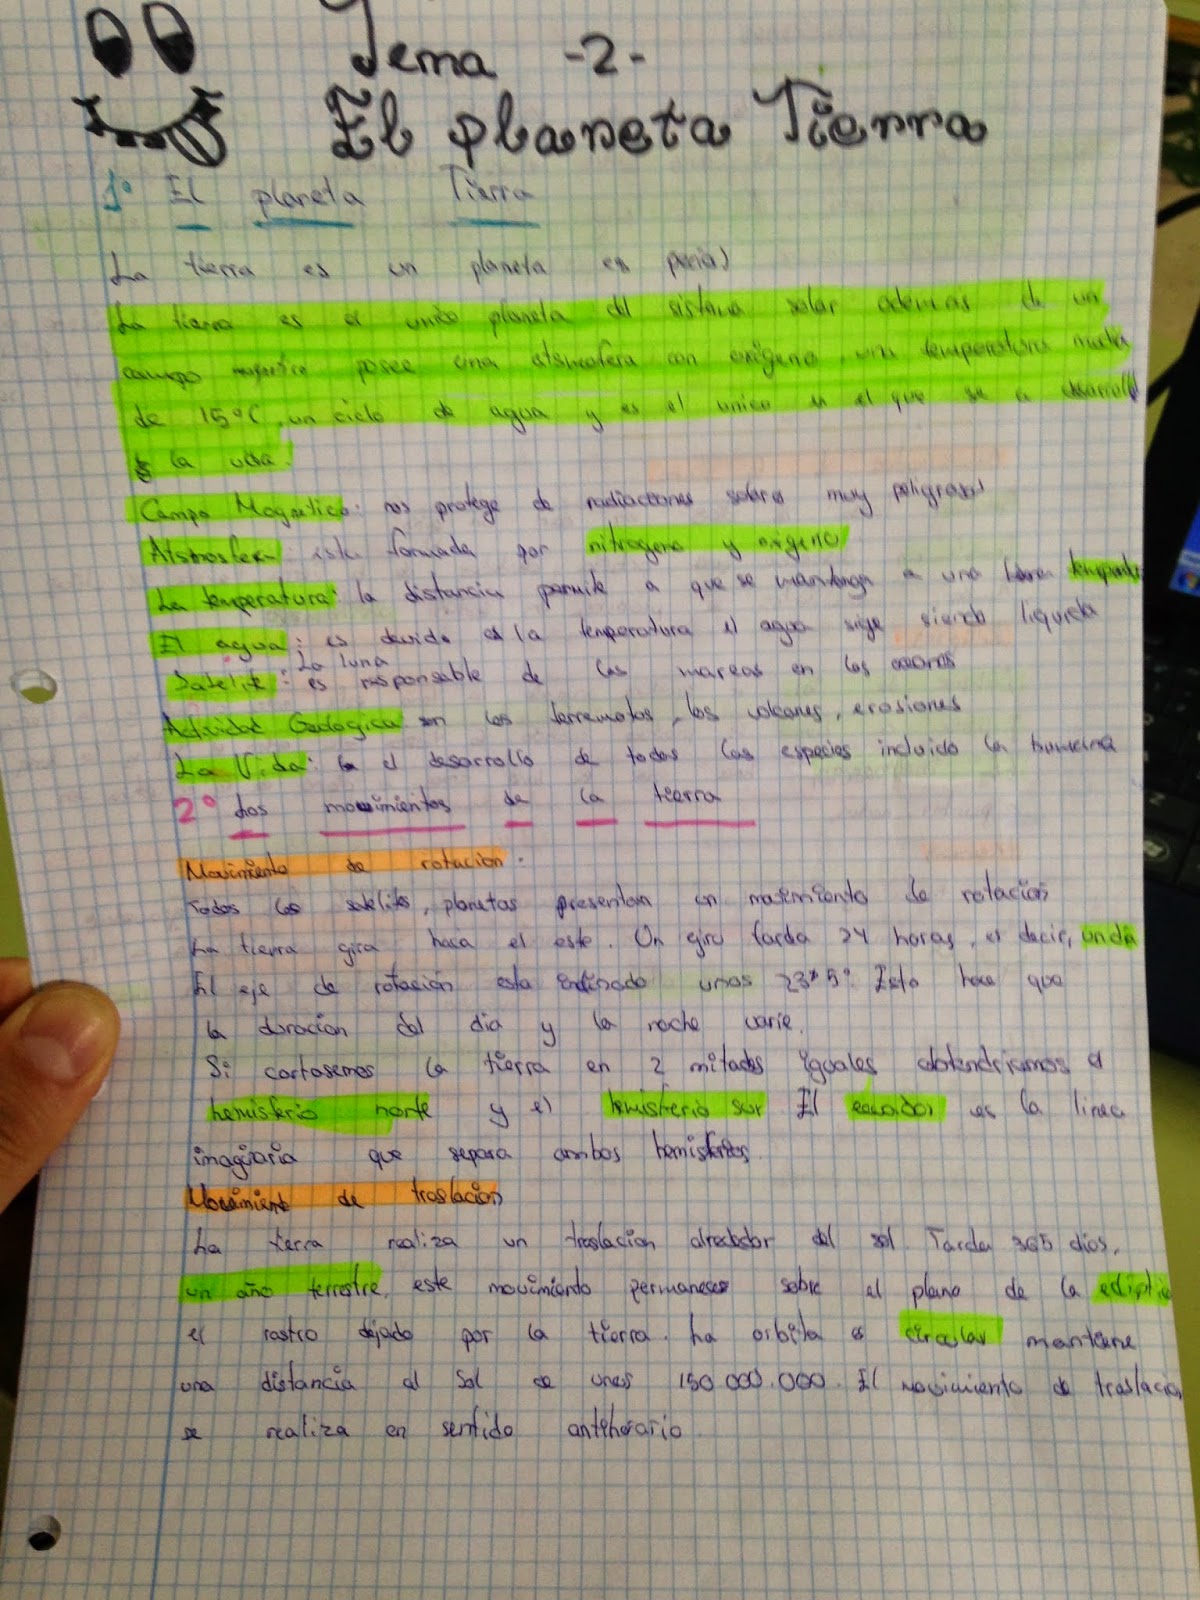 Tema -2-
El planeta Tierra
1º El planeta Tierra
La tierra es un planeta especial
La tierra es el unico planeta del sistema solar ademas de un
campo magnetico posee una atsmosfera con oxigeno, una temperatura media
de 15ºC, un ciclo de agua y es el unico en el que se a desarrolla
la vida.
Campo Magnetico: nos protege de radiaciones solares muy peligrosas
Atsmosfera: esta formada por nitrogeno y oxigeno
La temperatura: la distancia permite a que se mantenga a una buena temperatura
El agua: es devido es la temperatura el agua sige siendo liquida
La luna
Satelite: es responsable de las mareas en los oceanos
Actividad Geologica son los terremotos, los volcanes, erosiones
La Vida: el desarrollo de todas las especies incluido la humana
2º Los movimientos de la tierra
Movimiento de rotacion.
Todos los satelites, planetas presentan un movimiento de rotacion
La tierra gira hacia el este. Un giro tarda 24 horas, es decir, un dia
El eje de rotación esta inclinado unos 23'5º. Esto hace que
la duracion del dia y la noche varie.
Si cortasemos la tierra en 2 mitades iguales obtendriamos el
hemisferio norte y el hemisferio sur El ecuador es la linea
imaginaria que separa ambos hemisferios.
Movimiento de traslacion
La tierra realiza un traslacion alrededor del sol Tarda 365 dias,
un año terrestre, este movimiento permanece sobre el plano de la ecliptica
el rastro dejado por la tierra. La orbita es circular mantiene
una distancia al Sol de unos 150.000.000. El movimiento de traslacion
se realiza en sentido antihorario.